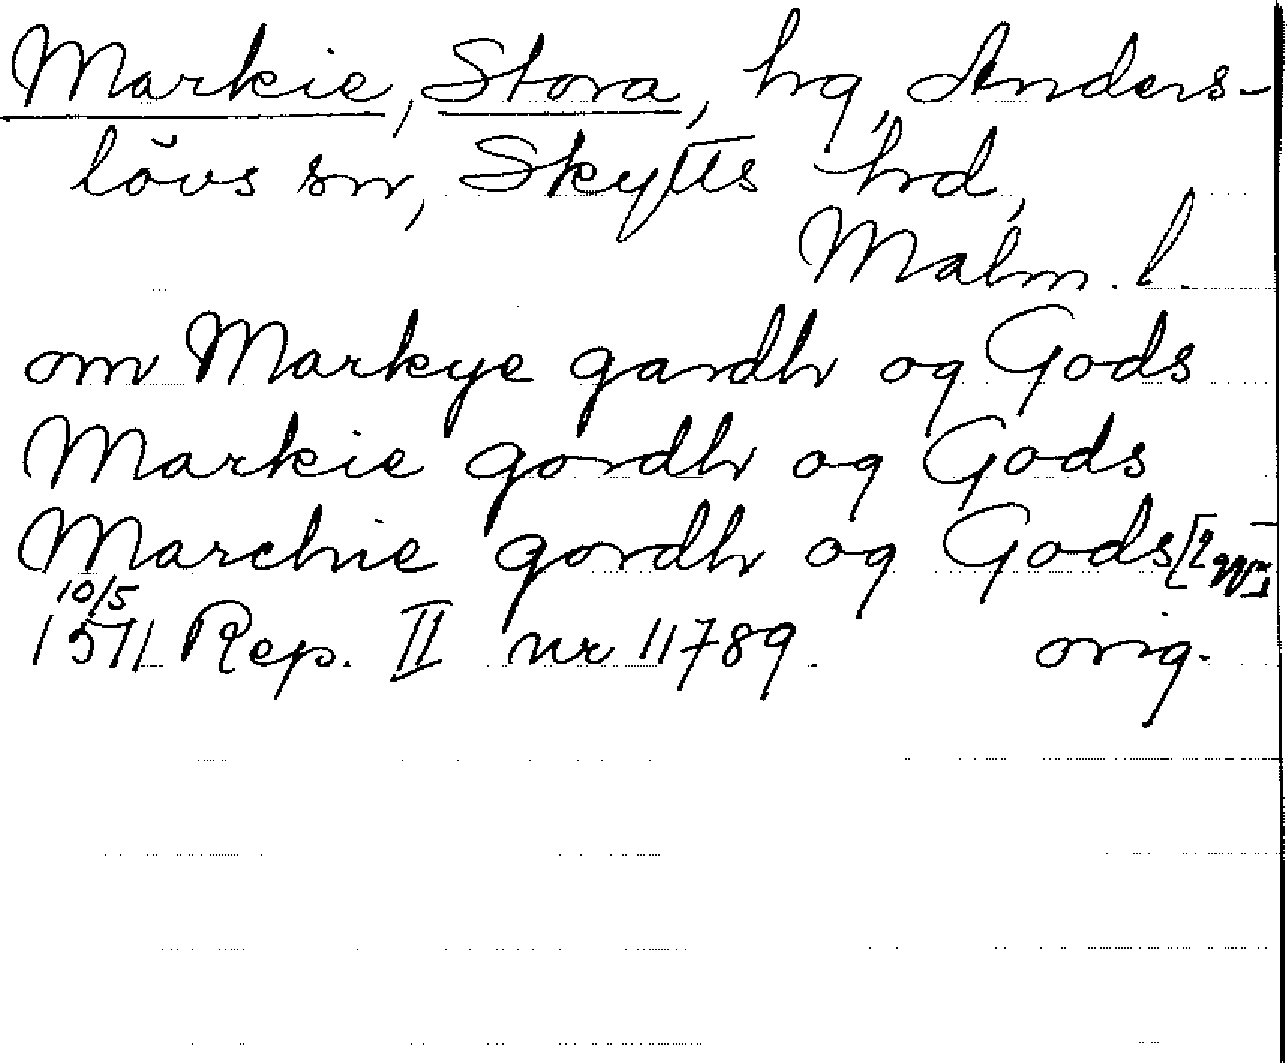 Markie, Stora, hg, Anders-
lövs sn, Skytts hd,
Malm. l.
om Markye gardh og Gods
Markie gordh og Gods
Marchie gordh og Gods [2 ggr]
10/5
1511 Rep. II nr 11789. orig.